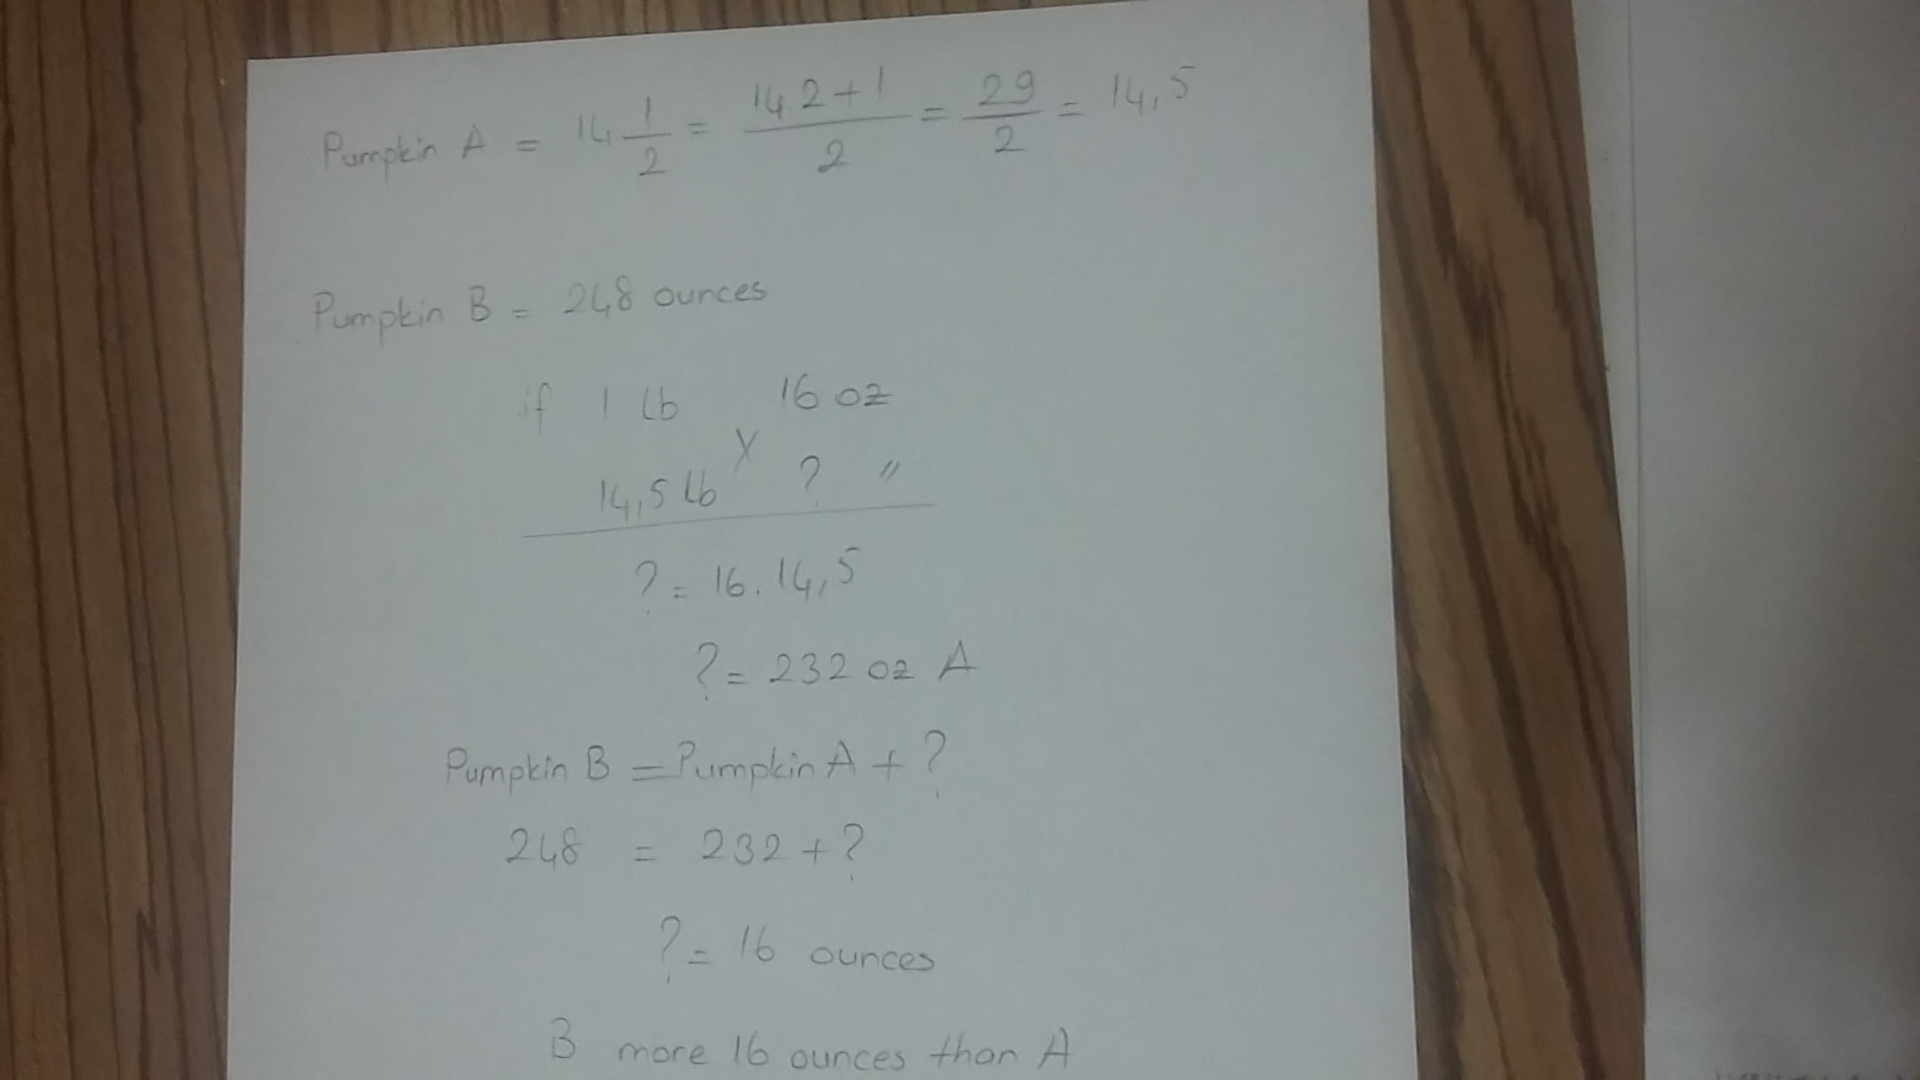 Pumpkin A = 14 1/2 = 14.2+1/2 = 29/2 = 14,5
Pumpkin B = 248 ounces
if 1 lb 16 oz
X
14,5 lb ? "
? = 16.14,5
? = 232 oz A
Pumpkin B = Pumpkin A + ?
248 = 232 + ?
? = 16 ounces
B more 16 ounces than A